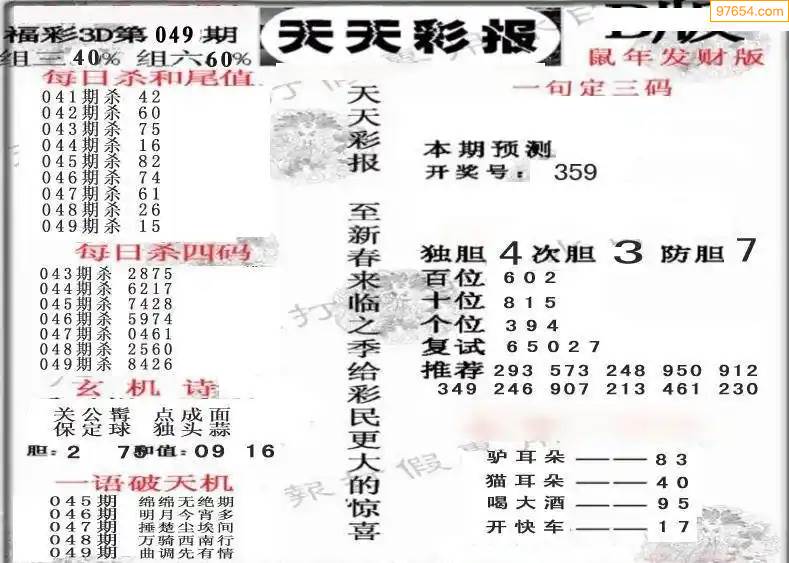 97654.com
福彩3D第049期
组三40% 组六60%
天天彩报
B版
鼠年发财版
每日杀和尾值
041期杀 42
042期杀 60
043期杀 75
044期杀 16
045期杀 82
046期杀 74
047期杀 61
048期杀 26
049期杀 15
每日杀四码
043期杀 2875
044期杀 6217
045期杀 7428
046期杀 5974
047期杀 0461
048期杀 2560
049期杀 8426
玄机诗
关公髯 点成面
保定球 独头蒜
胆:2 75和值:09 16
一语破天机
045期 绵绵无绝期
046期 明月今宵多
047期 捶楚尘埃间
048期 万骑西南行
049期 曲调先有情
天天彩报 至新春来临之季给彩民更大的惊喜
一句定三码
本期预测
开奖号: 359
独胆4次胆3防胆7
百位 602
十位 815
个位 394
复试 65027
推荐 293 573 248 950 912
349 246 907 213 461 230
驴耳朵———83
猫耳朵———40
喝大酒———95
开快车———17